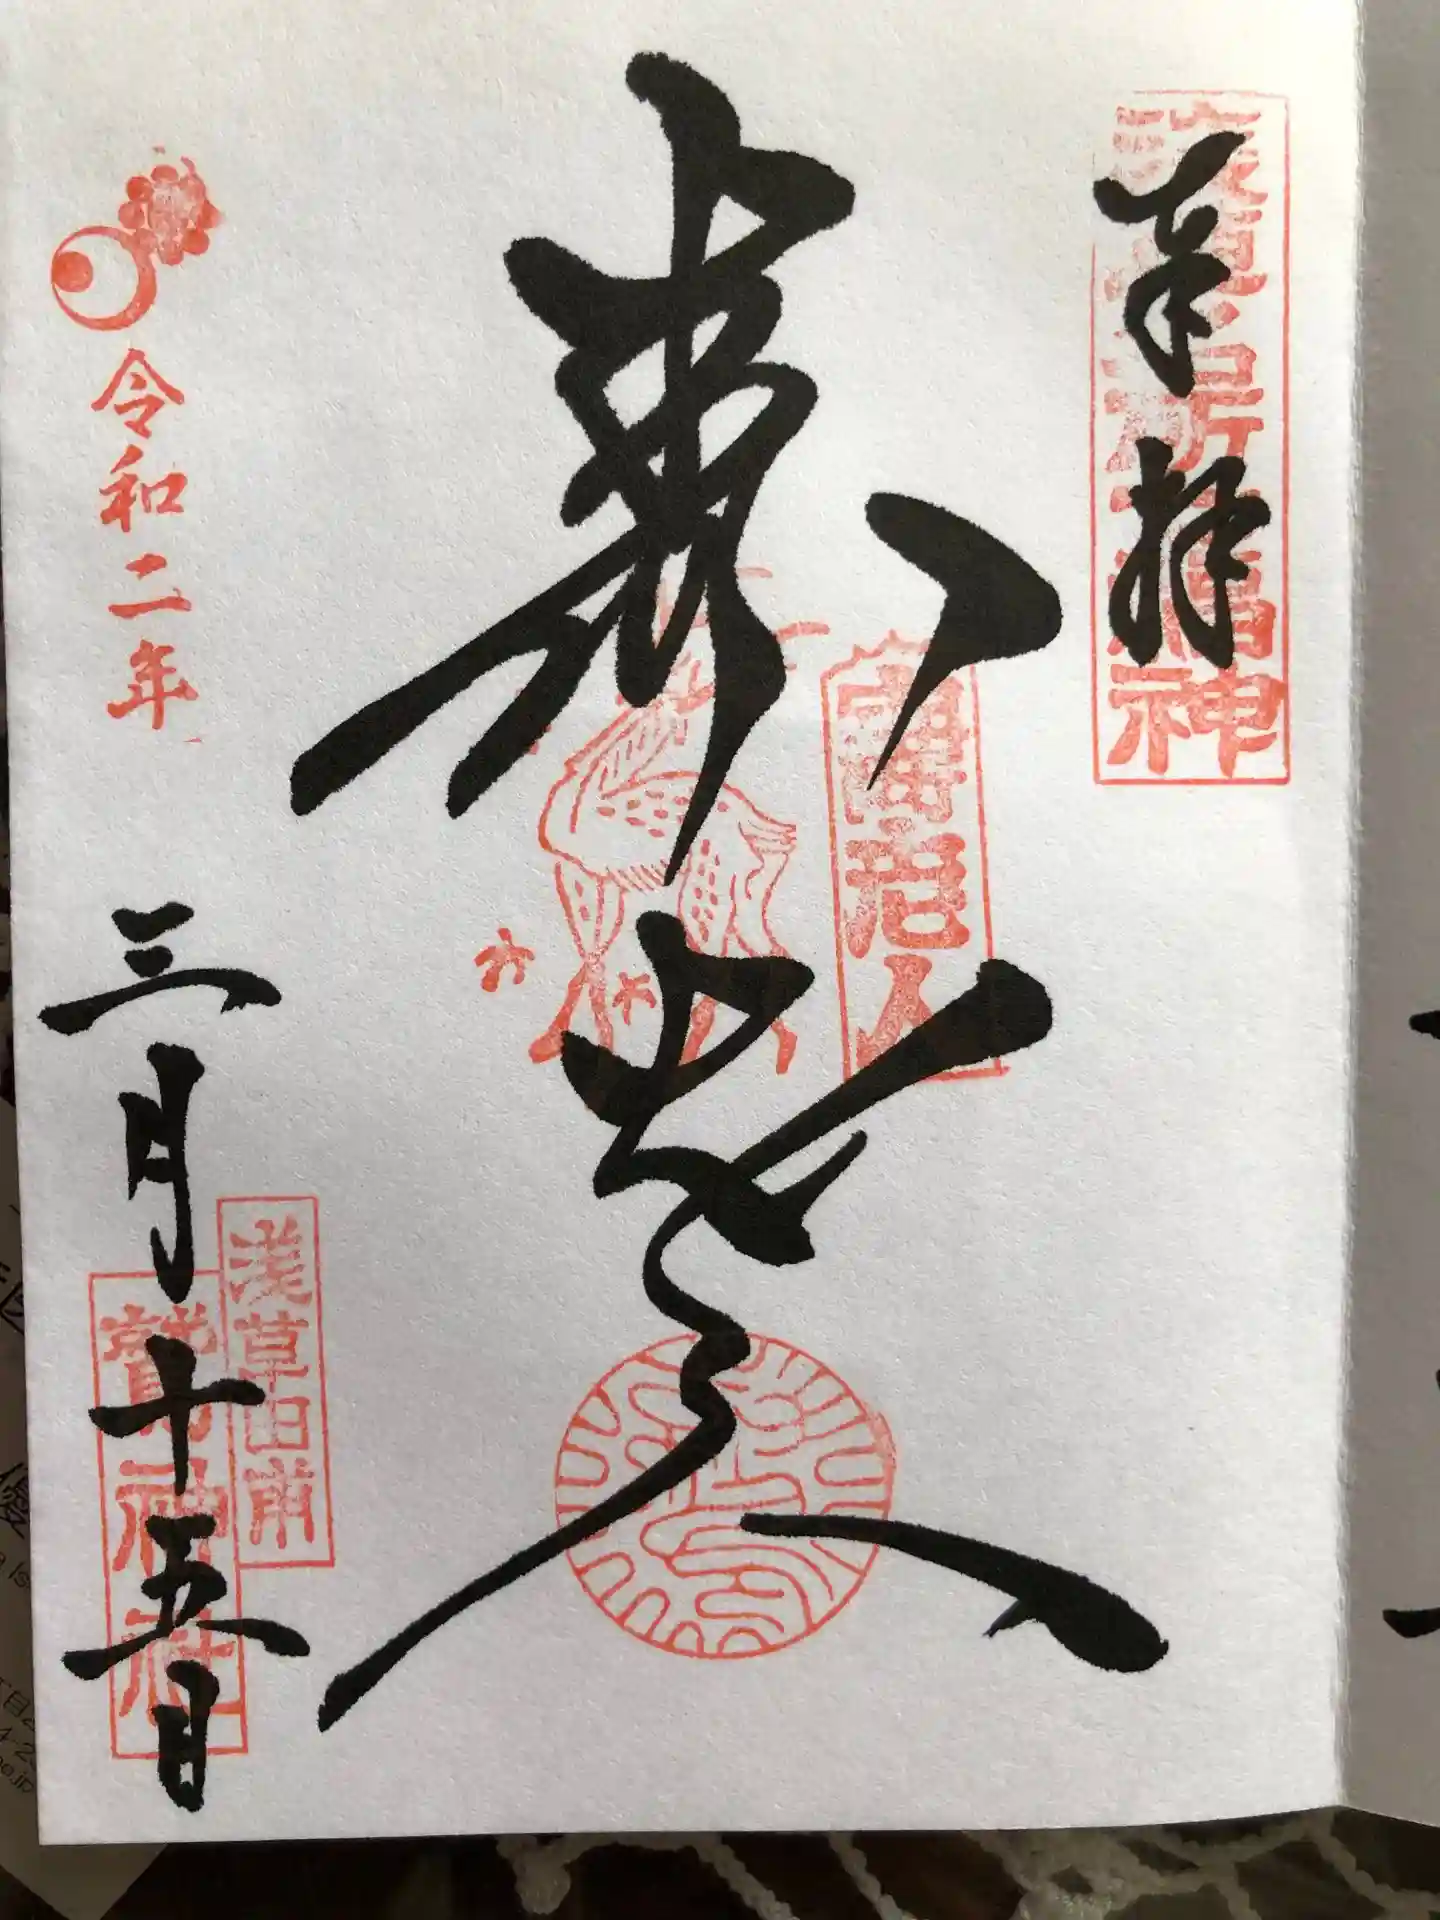 奉拝
浅草名所七福神
壽老人
壽老人
令和二年
三月十五日
浅草田甫
鷲神社